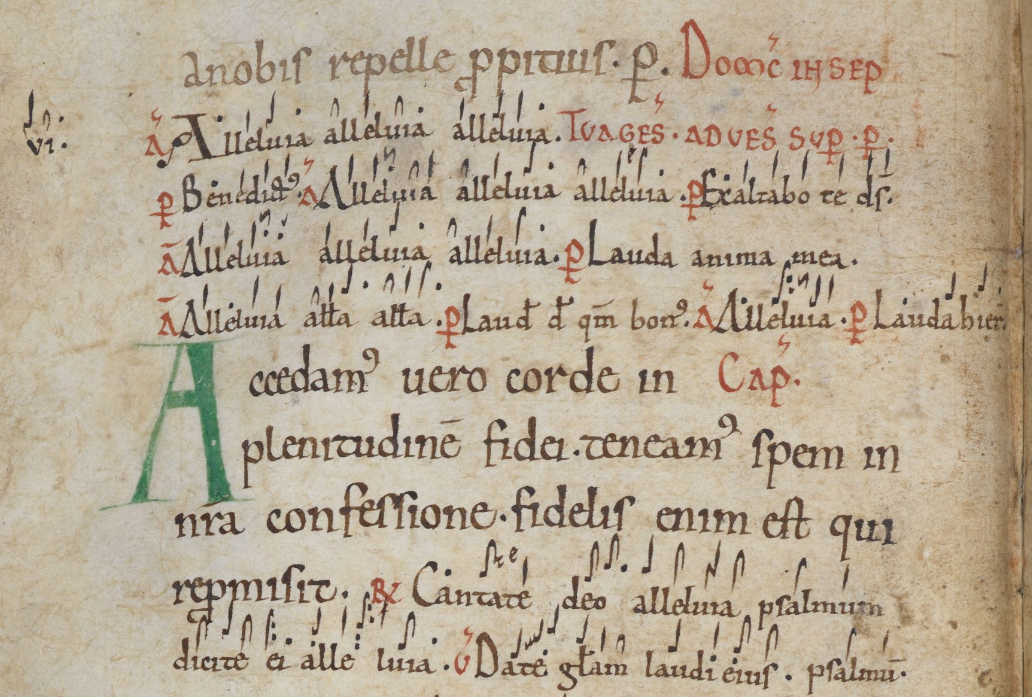 anobis repelle ꝓpitius. ꝑ. Domc̄ IN SEP
vi.
a̅ Alleluia alleluia alleluia. TVAGES. AD VES̄ SVꝑ. ꝑ.
ꝑ Benedictꝰ. a̅ Alleluia alleluia alleluia. ꝑ Exaltabo te ds̄.
a̅ Alleluia alleluia alleluia. ꝑ Lauda anima mea.
a̅ Alleluia alła alła. ꝑ Laud̄ d̄ qm̄ bonꝰ. a̅ Alleluia. ꝑ Lauda hier̄
Accedamꝰ uero corde in Cap̄.
plenitudinē fidei. teneamꝰ spem in
nr̄a confessione. fidelis enim est qui
repmisit. ℞ Cantate deo alleluia psalmum
dicite ei alle luia. v̄ Date gl̄am laudi eius. psalmū.